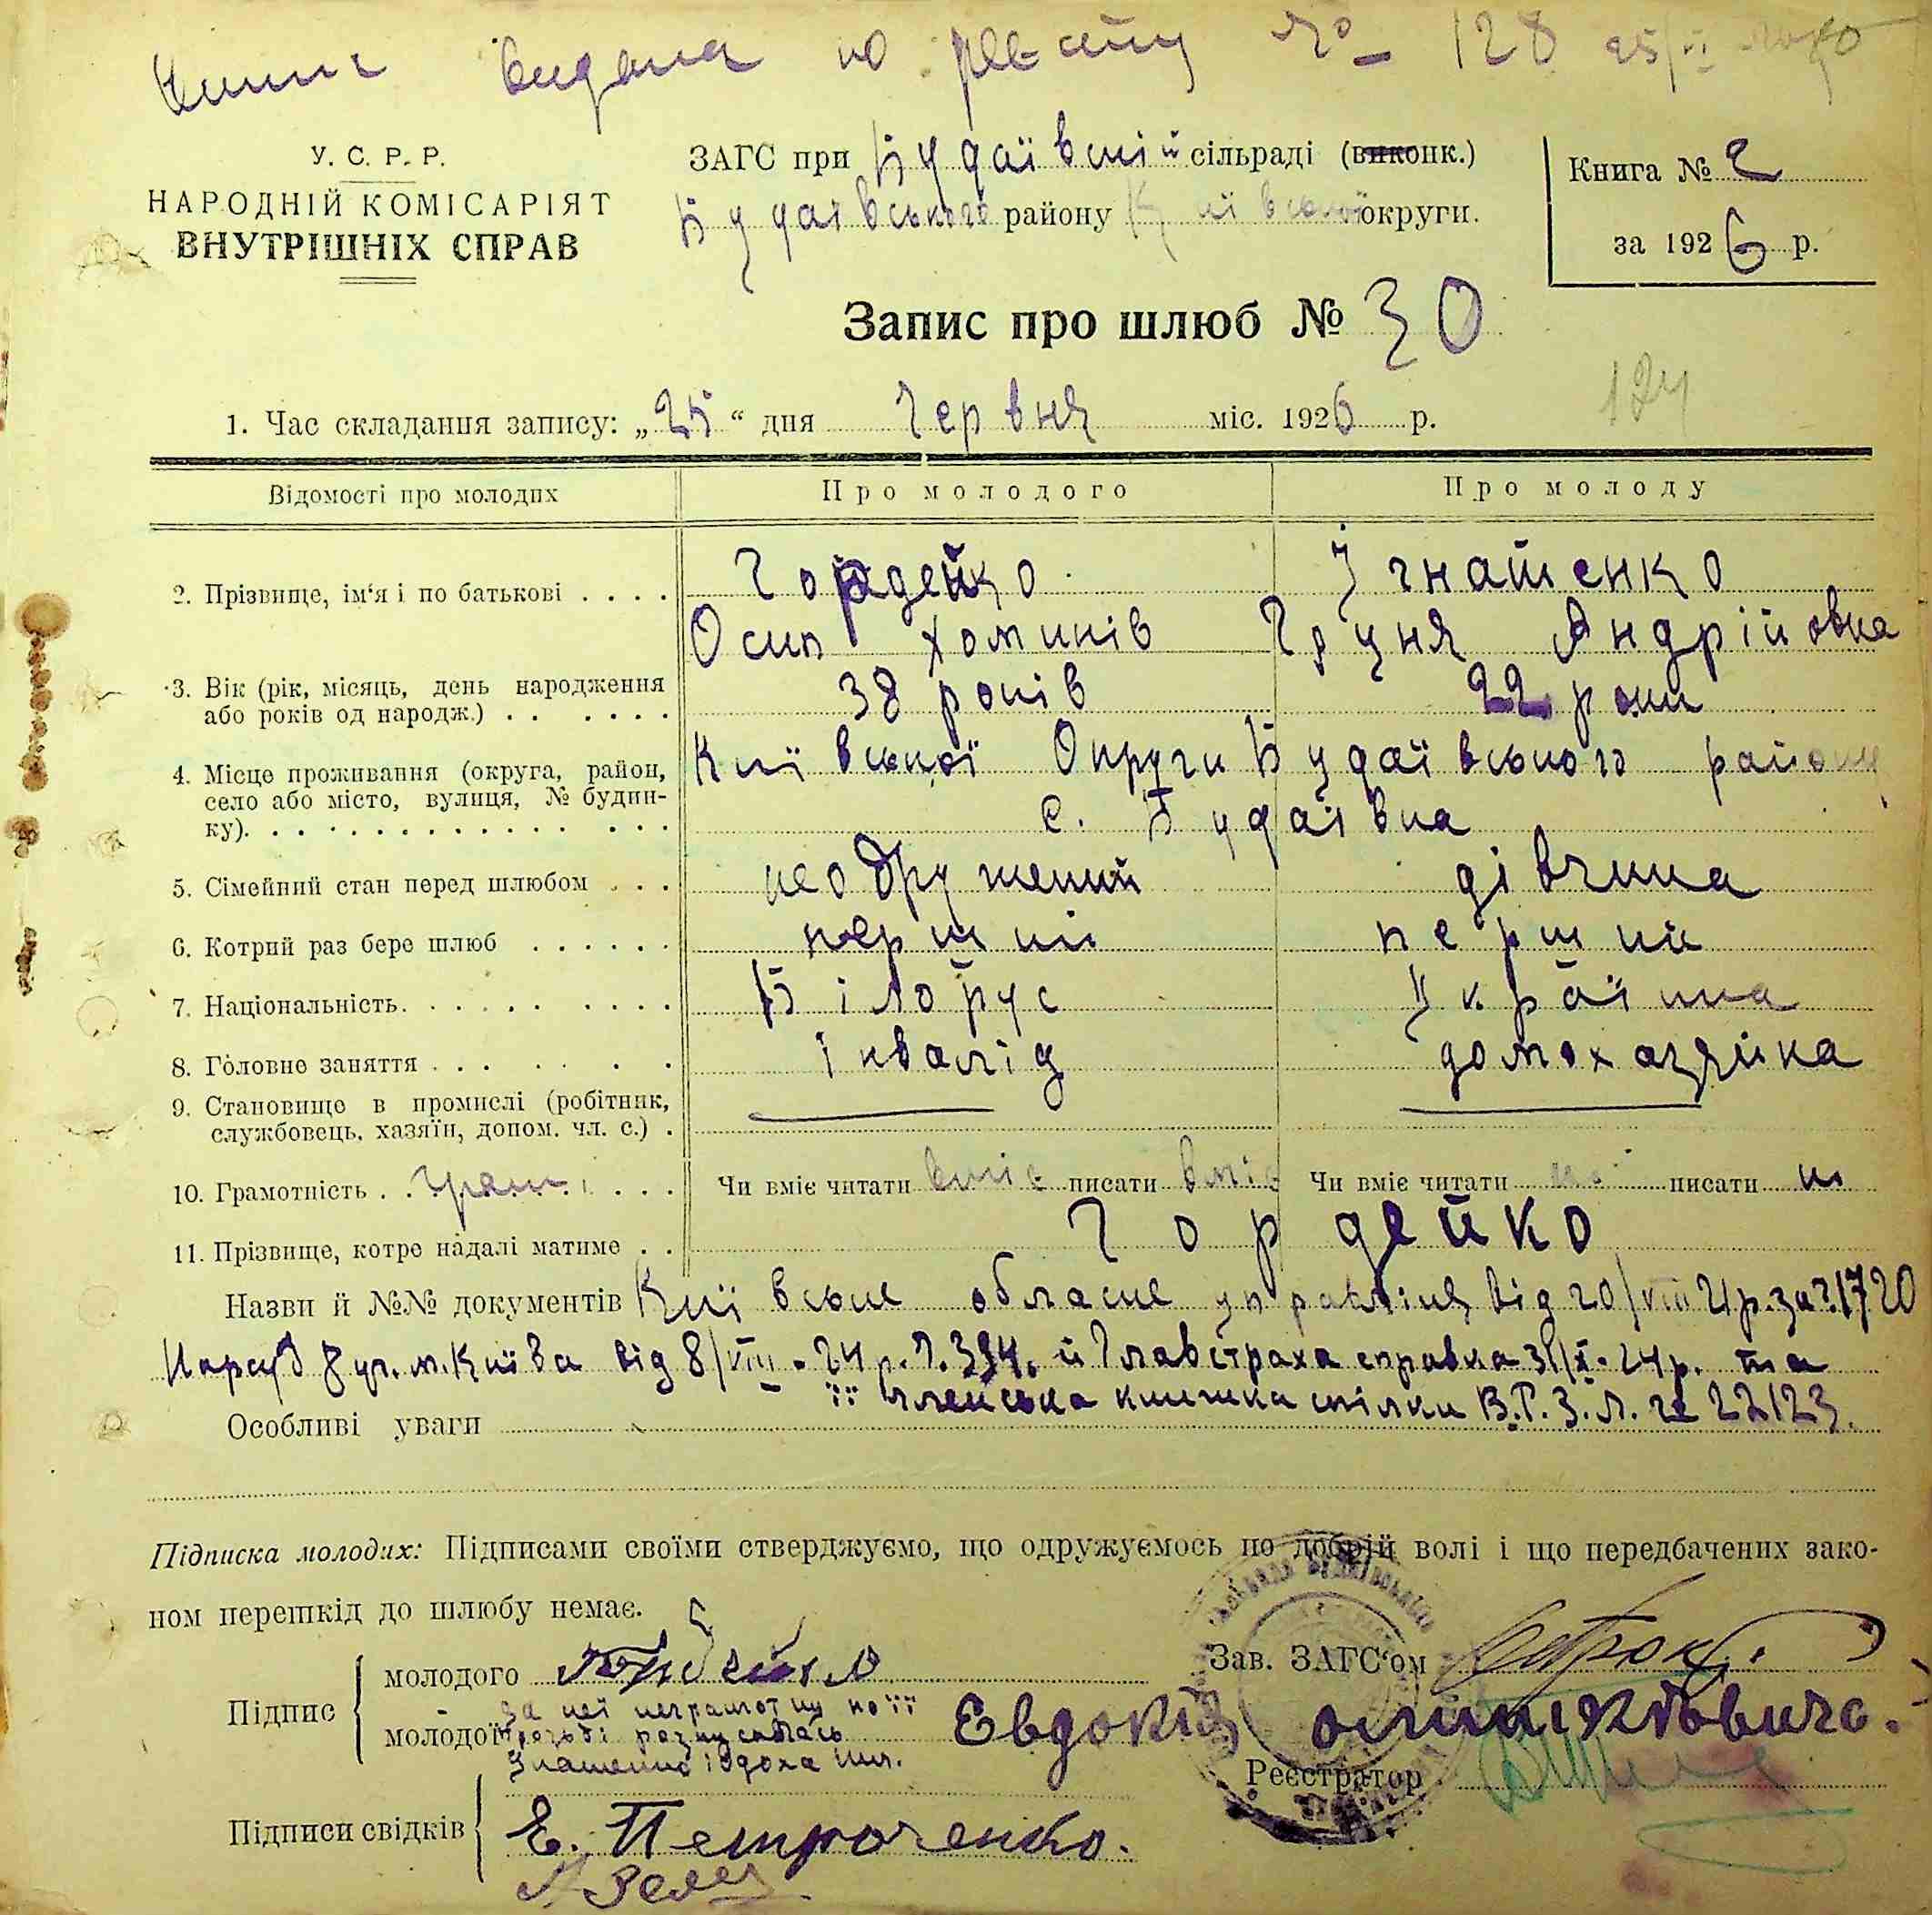 видана по № 128
У. С. Р. Р.
НАРОДНІЙ КОМІСАРІЯТ
ВНУТРІШНІХ СПРАВ
ЗАГС при Будаївській сільраді (виконк.)
Будаївського району Київської округи.
Книга № 2
за 1926 р.
Запис про шлюб № 30
124
1. Час складання запису: „25“ дня Червня міс. 1926 р.
Відомості про молодих
Про молодого
Про молоду
2. Прізвище, ім'я і по батькові . . . .
Гордейко
Ігнатенко
Осип Хоминів
Груня Андрійовна
3. Вік (рік, місяць, день народження
або років од народж.) . . . . . .
38 років
22 роки
4. Місце проживання (округа, район,
село або місто, вулиця, № будин-
ку). . . . . . . . . . . . . . . .
Київської Округи Будаївського району
с. Будаївка
5. Сімейний стан перед шлюбом . . .
неодружений
дівчина
6. Котрий раз бере шлюб . . . . . .
перший
перший
7. Національність. . . . . . . . . .
Білорус
Українка
8. Головне заняття . . . . . . .
інвалід
домохазяйка
9. Становище в промислі (робітник,
службовець, хазяїн, допом. чл. с.) .
10. Грамотність . . . . . .
Чи вміє читати вміє писати вміє
Чи вміє читати ні писати ні
11. Прізвище, котре надалі матиме . .
Гордейко
Назви й №№ документів Київське обласне управління від 20/VIII 24р. за №1720
Нарсуд 8 уч. м. Київа від 8/VIII - 24р. Ч. 394. й Главстраха справка 31/X - 24р. та
її членська книжка спілки В.Р.З.Л. № 22123.
Особливі уваги
Підписка молодих: Підписами своїми стверджуємо, що одружуємось по добрій волі і що передбачених зако-
ном перешкід до шлюбу немає.
Підпис
молодого
молодої
За неї неграмотну по її
прозьбі розписалась
Зав. ЗАГС'ом
Евдокія
Реєстратор
Підписи свідків
Е. Петроченко.